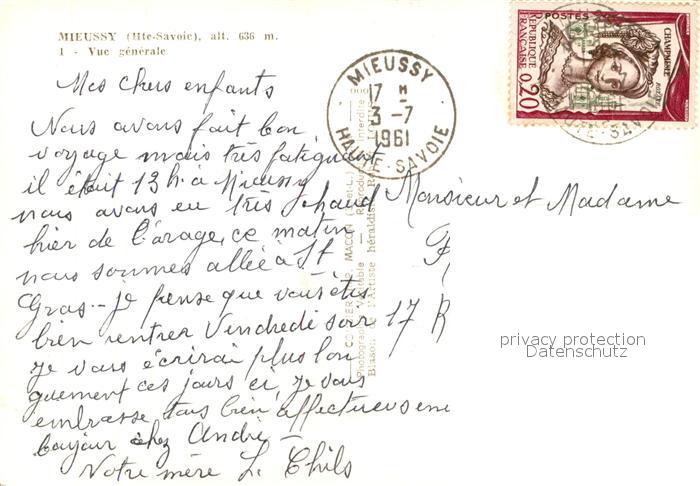 MIEUSSY (Hte-Savoie), alt. 636 m.
1 - Vue générale
Mes chers enfants
Nous avons fait bon
voyage mais très fatiguant
il était 13h à Mieussy
nous avons eu très chaud
hier de l'orage, ce matin
nous sommes allée à St
Gras - je pense que vous êtes
bien rentrer Vendredi soir
je vous écrirai plus lon
guement ces jours ci, je vous
embrasse tous bien affectueuseme
bonjour chez André -
Votre mère L.
MIEUSSY
17 H
3 - 7
1961
HAUTE-SAVOIE
RÉPUBLIQUE FRANÇAISE
POSTES
0,20
CHAMPMESLÉ
Monsieur et Madame
17 R
privacy protection
Datenschutz